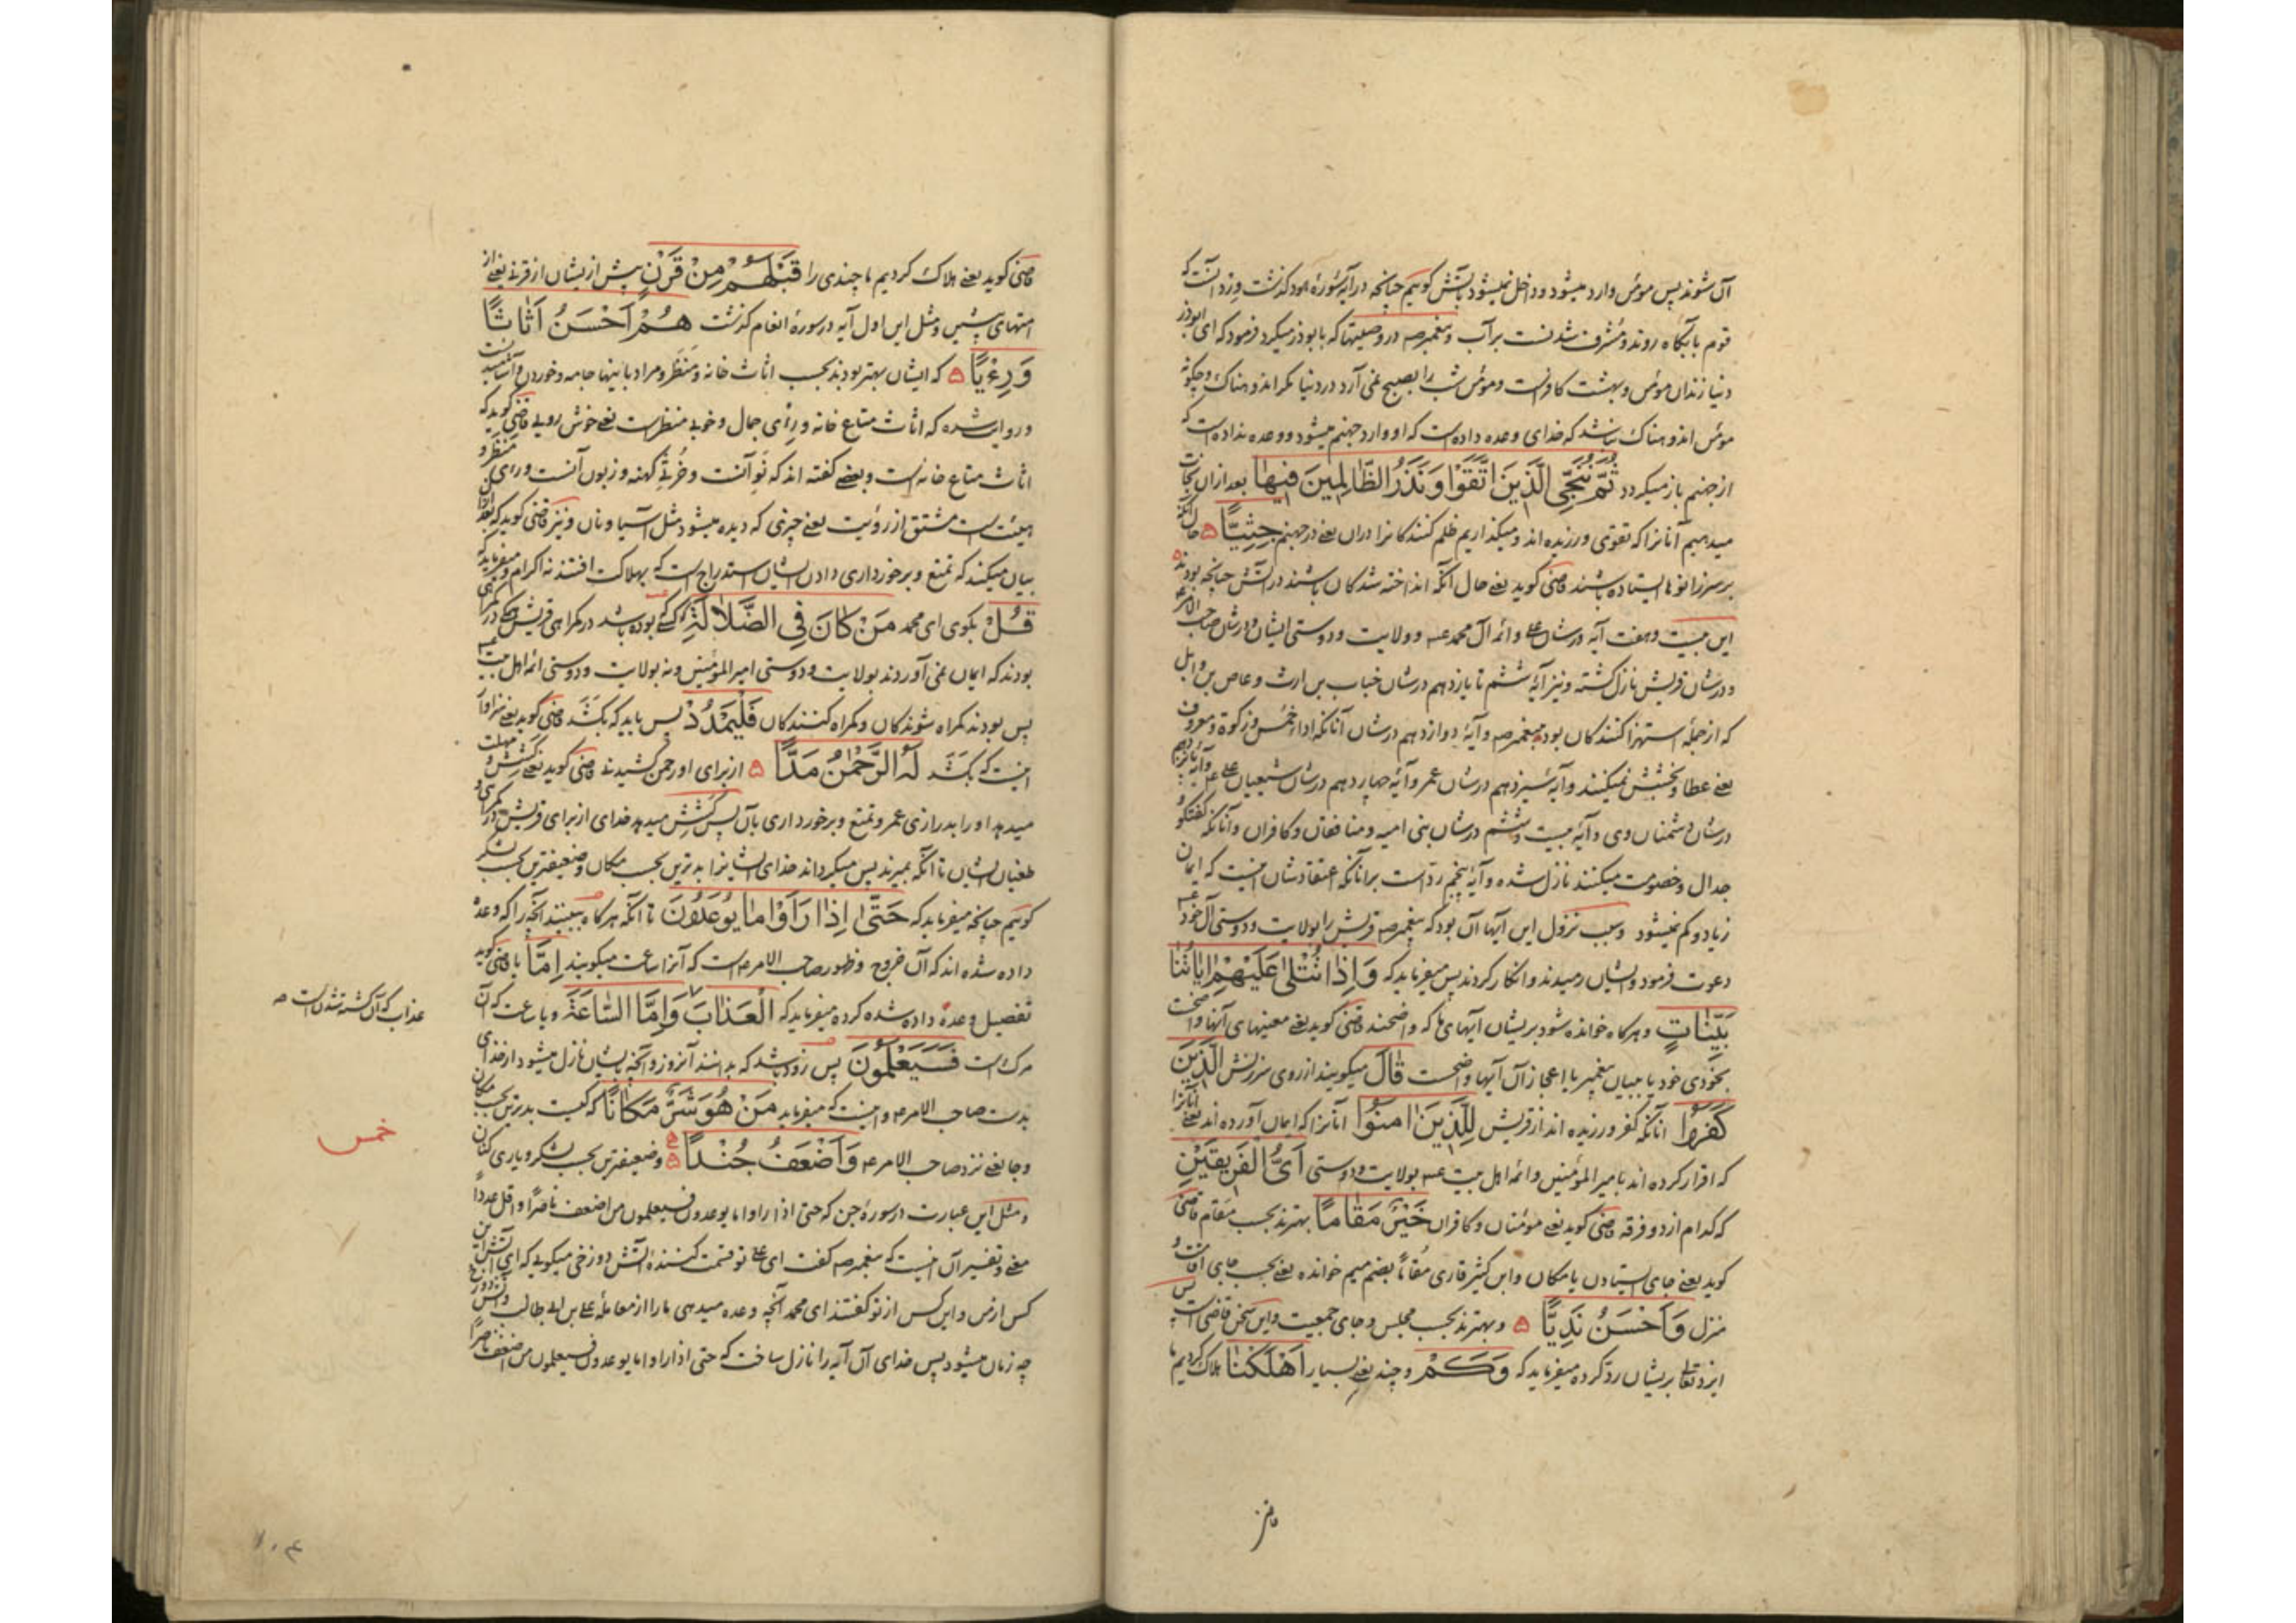 آن شوند پس مومن وارد میشود و داخل نمیشود بآتش کوییم چنانچه در آیه سورهٔ هود کذشت ورد آنست که
قوم بآبگاه روند و مشرف شدنست بر آب و پیغمبر صه در وصیتها که بابوذر میکرد فرمود که ای ابوذر
دنیا زندان مومن و بهشت کافرانست و مومن شب را بصبح نمی آرد در دنیا مکر اندوهناک و چکونه
مومن اندوهناک نباشد که خدای وعده داده است که او وارد جهنم میشود و وعده نداده است که
از جهنم باز میکردد ثُمَّ نُنَجِّی الَّذِینَ اتَّقَوْا وَنَذَرُ الظَّالِمِینَ فِیهَا بعد از ان نجات
میدهیم آنانرا که تقوی ورزیده اند و میکذاریم ظلم کنندکانرا در ان یعنی در جهنم جِثِیًّا حال آنکه
بر سر زانوها ایستاده باشند قاضی کوید یعنی حال آنکه انداخته شدکان باشند در آتش چنانچه بودند
این بیست و هفت آیه در شان علی و ائمه آل محمد عه و ولایت و دوستی ایشان و در شان صاحب الامر عه
و در شان قریش نازل کشته و نیز آیه ششم تا یازدهم در شان خباب بن ارث و عاص بن وایل
که از جمله استهزا کنندکان بود بپیغمبر صه و آیهٔ دوازدهم در شان آنانکه اداء خمس و زکوة و معروف
یعنی عطا و بخشش نمیکنند و آیهٔ سیزدهم در شان عمر و آیهٔ چهاردهم در شان شیعیان علی عه و آیه پانزدهم
در شان دشمنان وی و آیهٔ بیست و ششم در شان بنی امیه و منافقان و کافران و آنانکه کفتکو و
جدال و خصومت میکنند نازل شده و آیه پنجم رد است بر انانکه اعتقادشان اینست که ایمان
زیاد و کم نمیشود و سبب نزول این آیها آن بود که پیغمبر صه قریش را بولایت و دوستی آل خود عه
دعوت فرمود و ایشان رمیدند و انکار کردند پس میفرماید که وَاِذَا تُتْلَی عَلَیْهِمْ اٰیَاتُنَا
بَیِّنَاتٍ و هر کاه خوانده شود بر یشان آیهای ما که واضحند قاضی کوید یعنی معنیهای آنها واضحست
بخودی خود یا ببیان پیغمبر یا اعجاز آن آیها واضحست قَالَ میکویند از روی سرزنش الَّذِینَ
کَفَرُوا انانکه کفر ورزیده اند از قریش لِلَّذِینَ اٰمَنُوا آنانرا که ایمان آورده اند یعنی آنانرا
که اقرار کرده اند بامیر المؤمنین و ائمه اهل بیت عه بولایت و دوستی اَیُّ الْفَرِیقَیْنِ
که کدام از دو فرقه قاضی کوید یعنی مومنان و کافران خَیْرٌ مَقَامًا بهترند بحسب مقام قاضی
کوید یعنی جای ایستادن یا مکان و ابن کثیر قاری مُقاماً بضم میم خوانده یعنی بحسب جای اقامت و
منزل وَاَحْسَنُ نَدِیًّا و بهترند بحسب مجلس و جای جمعیت و این سخن قاضی است پس
ایزد تعالی بر یشان رد کرده میفرماید که وَکَمْ و چند یعنی بسیار اَهْلَکْنَا هلاک کردیم ما
قاضی کوید یعنی هلاک کردیم ما چندی را قَبْلَهُمْ مِنْ قَرْنٍ پیش از یشان از قرنی یعنی از
امتهای پیشین و مثل این اول آیه در سورهٔ انعام کذشت هُمْ اَحْسَنُ اَثَاثًا
وَرِءْیًا که ایشان بهتر بودند بحسب اثاث خانه و منظر و مراد باینها جامه و خوردن و آشامیدنست
و روایت شده که اثاث متاع خانه و رِأی جمال و خوبی منظر است یعنی خوش رویی قاضی کوید که
اثاث متاع خانه است و بعضی کفته اند که نو آنست و خُرثی کهنه و زبون آنست و رءی منظر و
هیئت است مشتق از رؤیت یعنی چیزی که دیده میشود مثل آسیا و نان و نیز قاضی کوید که بعد از آن
بیان میکند که تمتع و برخورداری دادن ایشان استدراج است که بهلاکت افتند نه اکرام و میفرماید که
قُلْ بکوی ای محمد مَنْ کَانَ فِی الضَّلَالَةِ کسی که بوده باشد در کمراهی قریش در کمراهی
بودند که ایمان نمی آوردند بولایت و دوستی امیر المؤمنین و نه بولایت و دوستی ائمه اهل بیت عه
پس بودند کمراه شوندکان و کمراه کنندکان فَلْیَمْدُدْ پس باید که بکشد قاضی کوید یعنی سزاوار
اینست که بکشد لَهُ الرَّحْمٰنُ مَدًّا از برای او رحمن کشیدنی قاضی کوید یعنی کشش و مهلت
میدهد او را بدرازی عمر و تمتع و برخورداری بآن پس کشش میدهد خدای از برای قریش در کمراهی و
طغیان ایشان تا آنکه بمیرند پس میکرداند خدای ایشانرا بدترین بحسب مکان و ضعیفترین بحسب لشکر
کوییم چنانچه میفرماید که حَتَّی اِذَا رَاَوْا مَا یُوعَدُونَ تا آنکه هر کاه ببینند آنچه را که وعده
داده شده اند که آن خروج و ظهور صاحب الامر عه است که آنرا ساعت میکویند اِمَّا یا قاضی کوید
تفصیل وعده داده شده کرده میفرماید که الْعَذَابَ وَاِمَّا السَّاعَةَ و یا ساعت که آن
مرک است فَسَیَعْلَمُونَ پس زود باشد که بدانند آنروز و آنچه بایشان نازل میشود از خدای
بدست صاحب الامر عه و اینست که میفرماید مَنْ هُوَ شَرٌّ مَکَانًا که کیست بدترین بحسب مکان
و جا یعنی نزد صاحب الامر عه وَاَضْعَفُ جُنْدًا و ضعیفترین بحسب لشکر و یاری کنان
و مثل این عبارت در سورهٔ جن که حتی اذا راوا ما یوعدون فسیعلمون من اضعف ناصرًا و اقل عددًا
یعنی و تفسیر آن اینست که پیغمبر صه کفت ای علی تو قسمت کنندهٔ آتش دوزخی میکویی که ای آتش این
کس از من و این کس از تو کفتند ای محمد آنچه وعده میدهی ما را از معامله علی بن ابی طالب
چه زمان میشود پس خدای آن آیه را نازل ساخت که حتی اذا راوا ما یوعدون فسیعلمون من اضعف ناصرًا
عذاب که آن کشته شدنست صه
خمس
قاضی